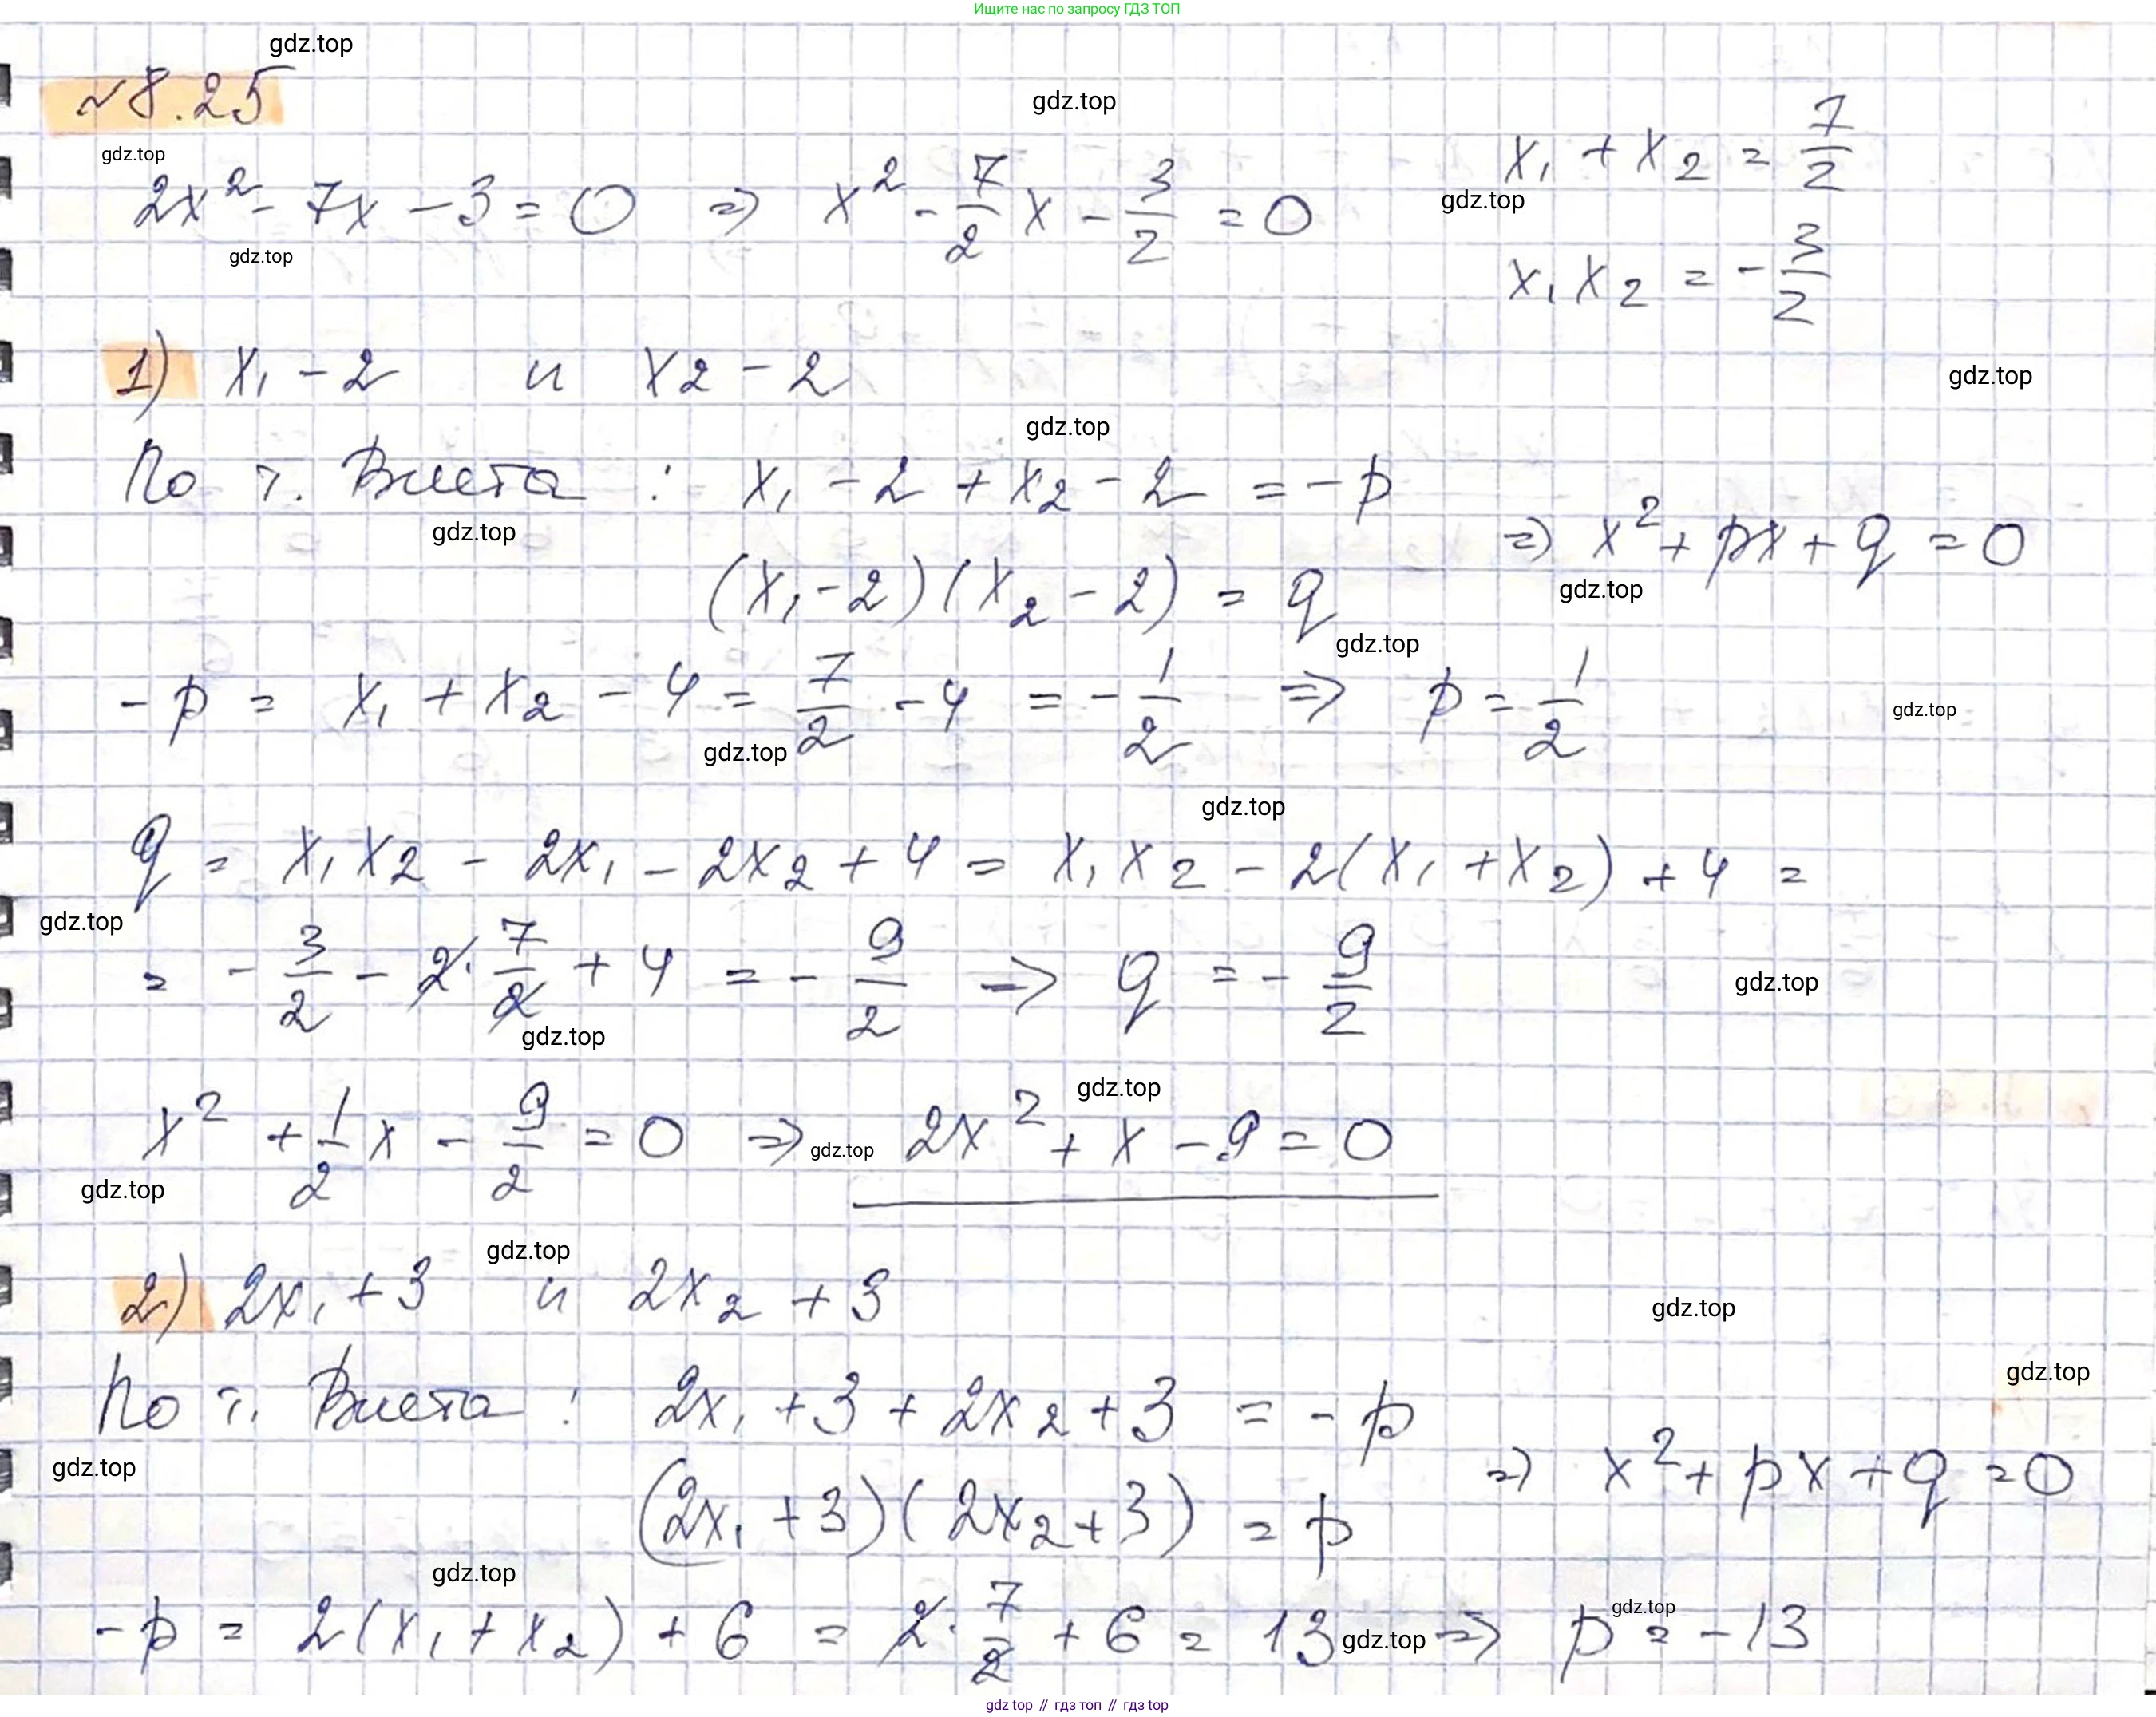 Ищите нас по запросу ГДЗ ТОП
gdz.top
№8.25
gdz.top
gdz.top
2x² - 7x - 3 = 0 ⇒ x² - 7/2 x - 3/2 = 0
x₁ + x₂ = 7/2
gdz.top
gdz.top
x₁x₂ = -3/2
1) x₁ - 2 и x₂ - 2
gdz.top
gdz.top
По т. Виета : x₁ - 2 + x₂ - 2 = -p
gdz.top
⇒ x² + px + q = 0
(x₁ - 2)(x₂ - 2) = q
gdz.top
gdz.top
-p = x₁ + x₂ - 4 = 7/2 - 4 = -1/2 ⇒ p = 1/2
gdz.top
gdz.top
gdz.top
q = x₁x₂ - 2x₁ - 2x₂ + 4 = x₁x₂ - 2(x₁ + x₂) + 4 =
gdz.top
= -3/2 - 2·7/2 + 4 = -9/2 ⇒ q = -9/2
gdz.top
gdz.top
gdz.top
x² + 1/2 x - 9/2 = 0 ⇒ 2x² + x - 9 = 0
gdz.top
gdz.top
gdz.top
2) 2x₁ + 3 и 2x₂ + 3
gdz.top
gdz.top
По т. Виета : 2x₁ + 3 + 2x₂ + 3 = -p
gdz.top
⇒ x² + px + q = 0
(2x₁ + 3)(2x₂ + 3) = p
gdz.top
gdz.top
-p = 2(x₁ + x₂) + 6 = 2·7/2 + 6 = 13 ⇒ p = -13
gdz.top
gdz top // гдз топ // гдз top